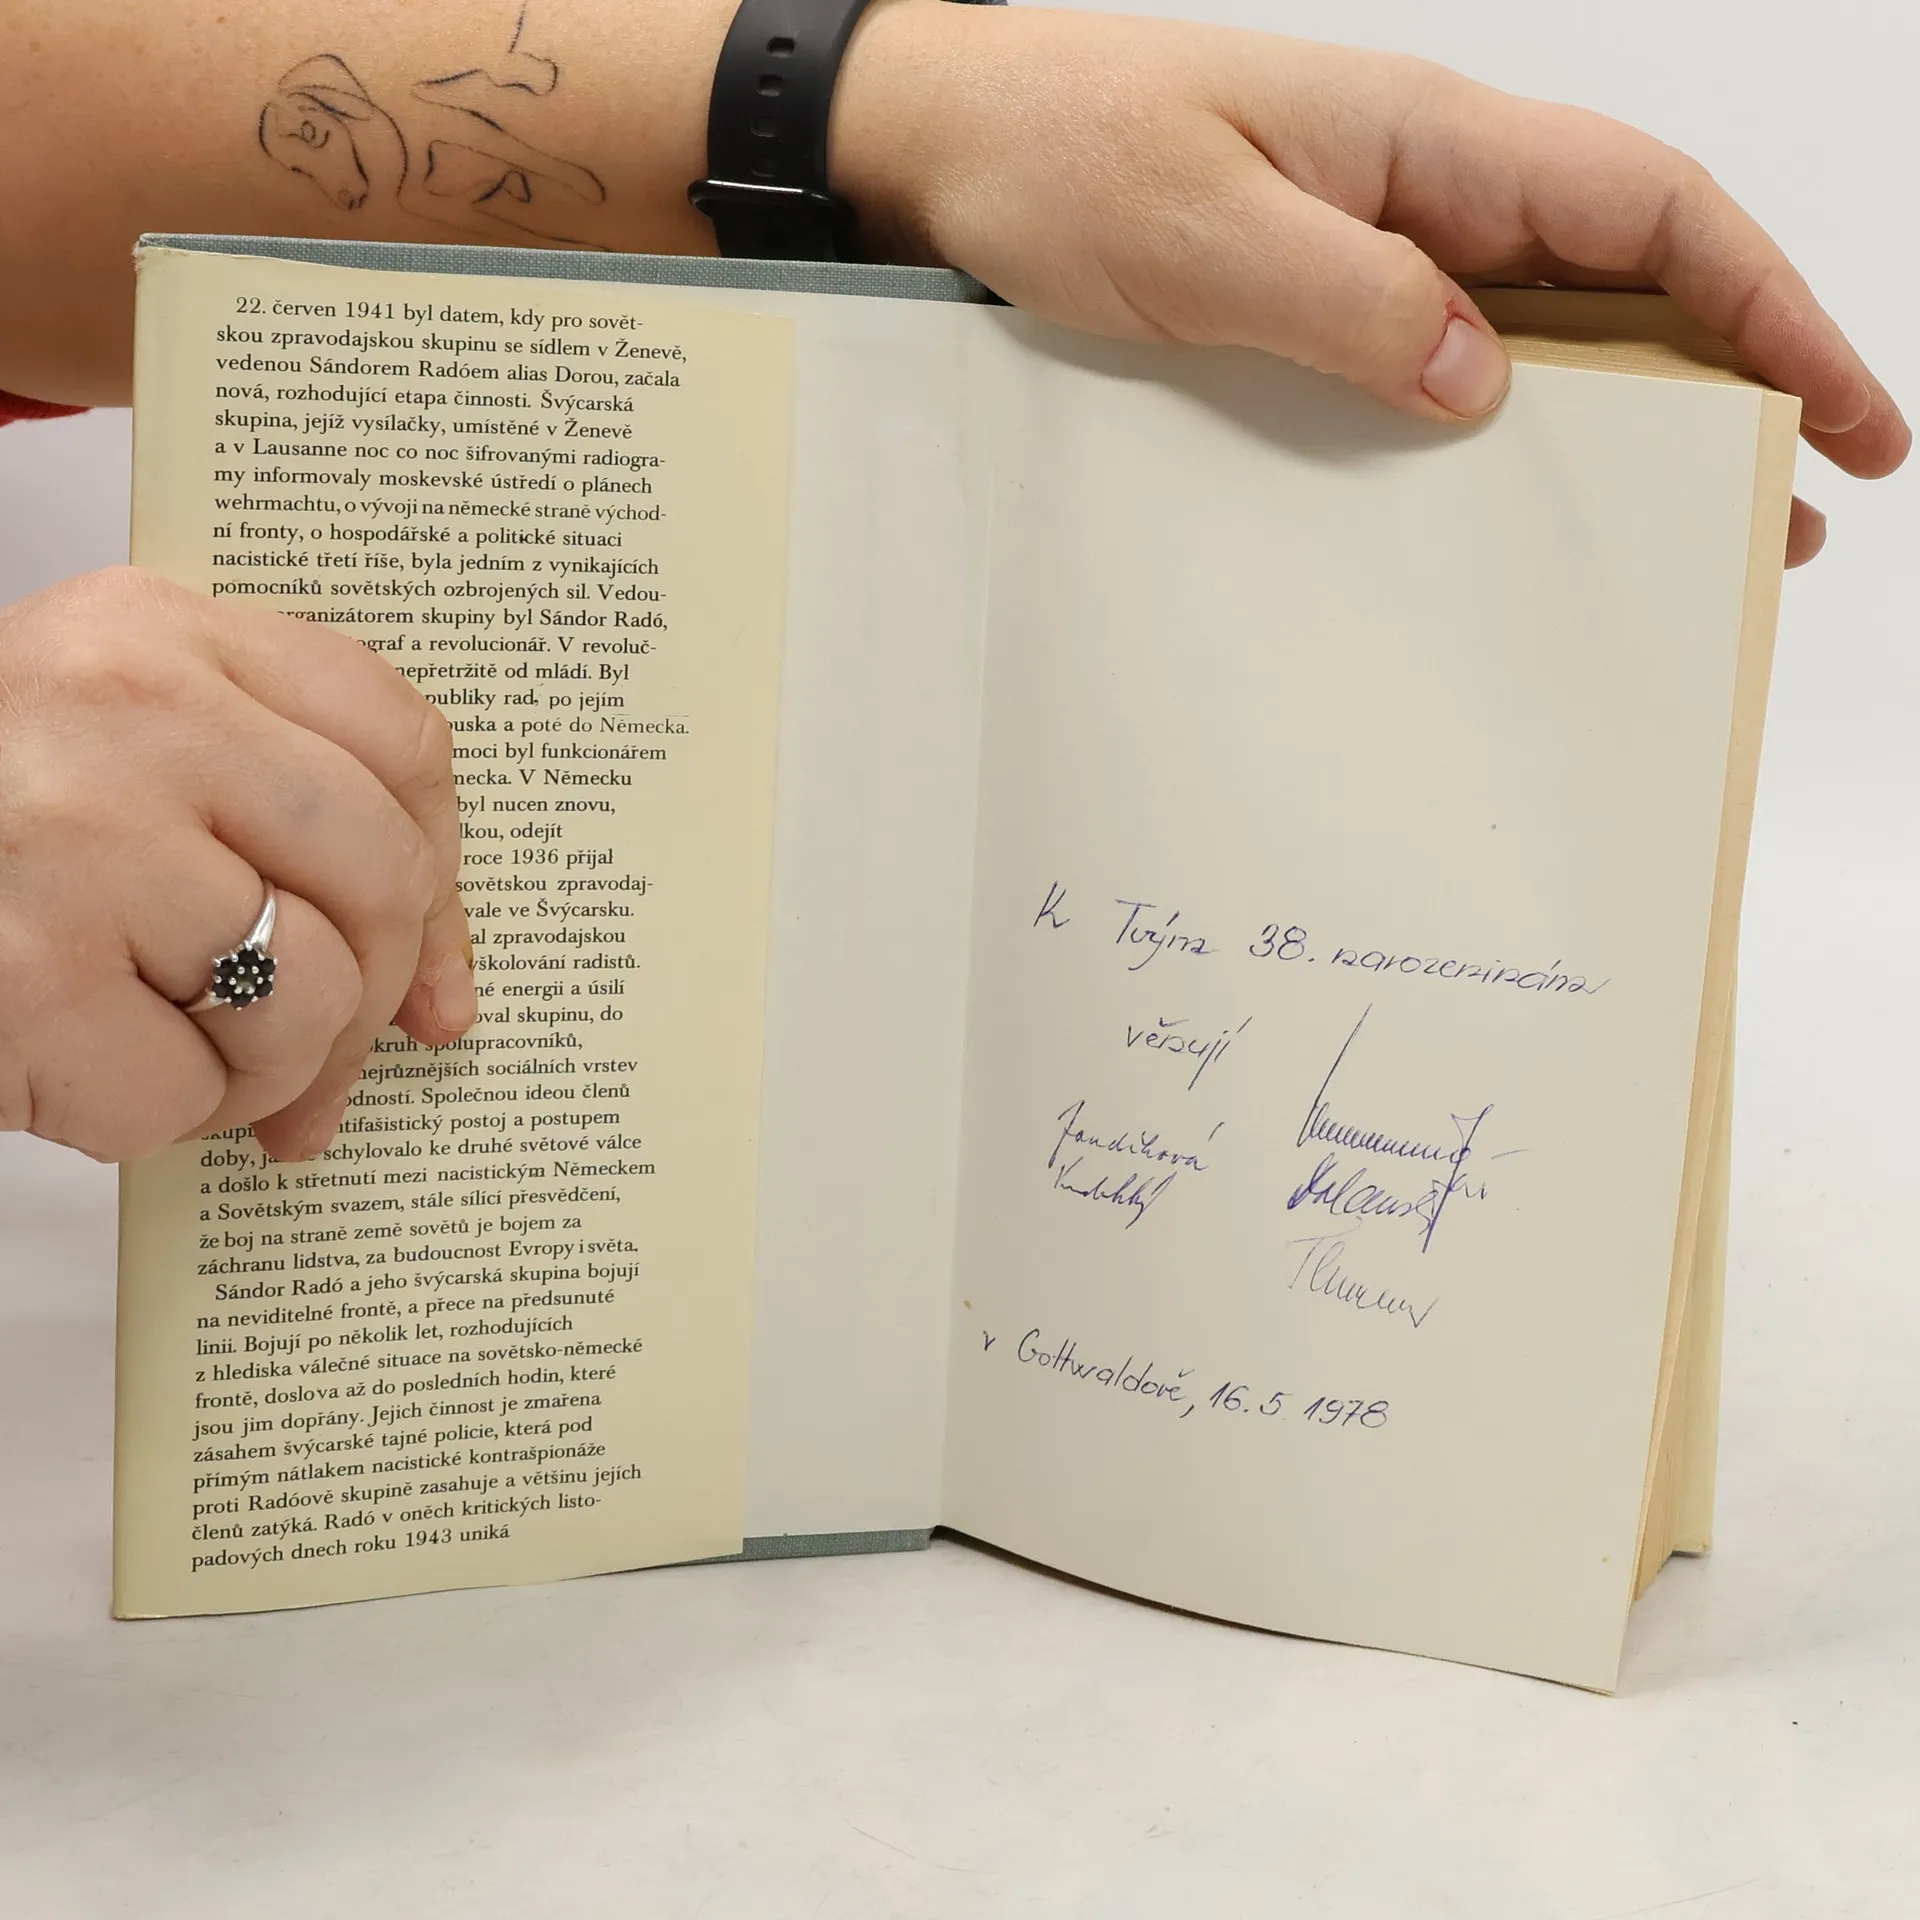 22. červen 1941 byl datem, kdy pro sovět-
skou zpravodajskou skupinu se sídlem v Ženevě,
vedenou Sándorem Radóem alias Dorou, začala
nová, rozhodující etapa činnosti. Švýcarská
skupina, jejíž vysílačky, umístěné v Ženevě
a v Lausanne noc co noc šifrovanými radiogra-
my informovaly moskevské ústředí o plánech
wehrmachtu, o vývoji na německé straně východ-
ní fronty, o hospodářské a politické situaci
nacistické třetí říše, byla jedním z vynikajících
pomocníků sovětských ozbrojených sil. Vedou-
organizátorem skupiny byl Sándor Radó,
ograf a revolucionář. V revoluč-
nepřetržitě od mládí. Byl
publiky rad, po jejím
ouska a poté do Německa.
moci byl funkcionářem
mecka. V Německu
byl nucen znovu,
lkou, odejít
roce 1936 přijal
sovětskou zpravodaj-
vale ve Švýcarsku.
al zpravodajskou
yškolování radistů.
né energii a úsilí
oval skupinu, do
kruh spolupracovníků,
nejrůznějších sociálních vrstev
odností. Společnou ideou členů
skupi ntifašistický postoj a postupem
doby, ja schylovalo ke druhé světové válce
a došlo k střetnutí mezi nacistickým Německem
a Sovětským svazem, stále sílící přesvědčení,
že boj na straně země sovětů je bojem za
záchranu lidstva, za budoucnost Evropy i světa.
Sándor Radó a jeho švýcarská skupina bojují
na neviditelné frontě, a přece na předsunuté
linii. Bojují po několik let, rozhodujících
z hlediska válečné situace na sovětsko-německé
frontě, doslova až do posledních hodin, které
jsou jim dopřány. Jejich činnost je zmařena
zásahem švýcarské tajné policie, která pod
přímým nátlakem nacistické kontrašpionáže
proti Radóově skupině zasahuje a většinu jejích
členů zatýká. Radó v oněch kritických listo-
padových dnech roku 1943 uniká
K Tvým 38. narozeninám
věnují
Jandíková
v Gottwaldově, 16. 5. 1978